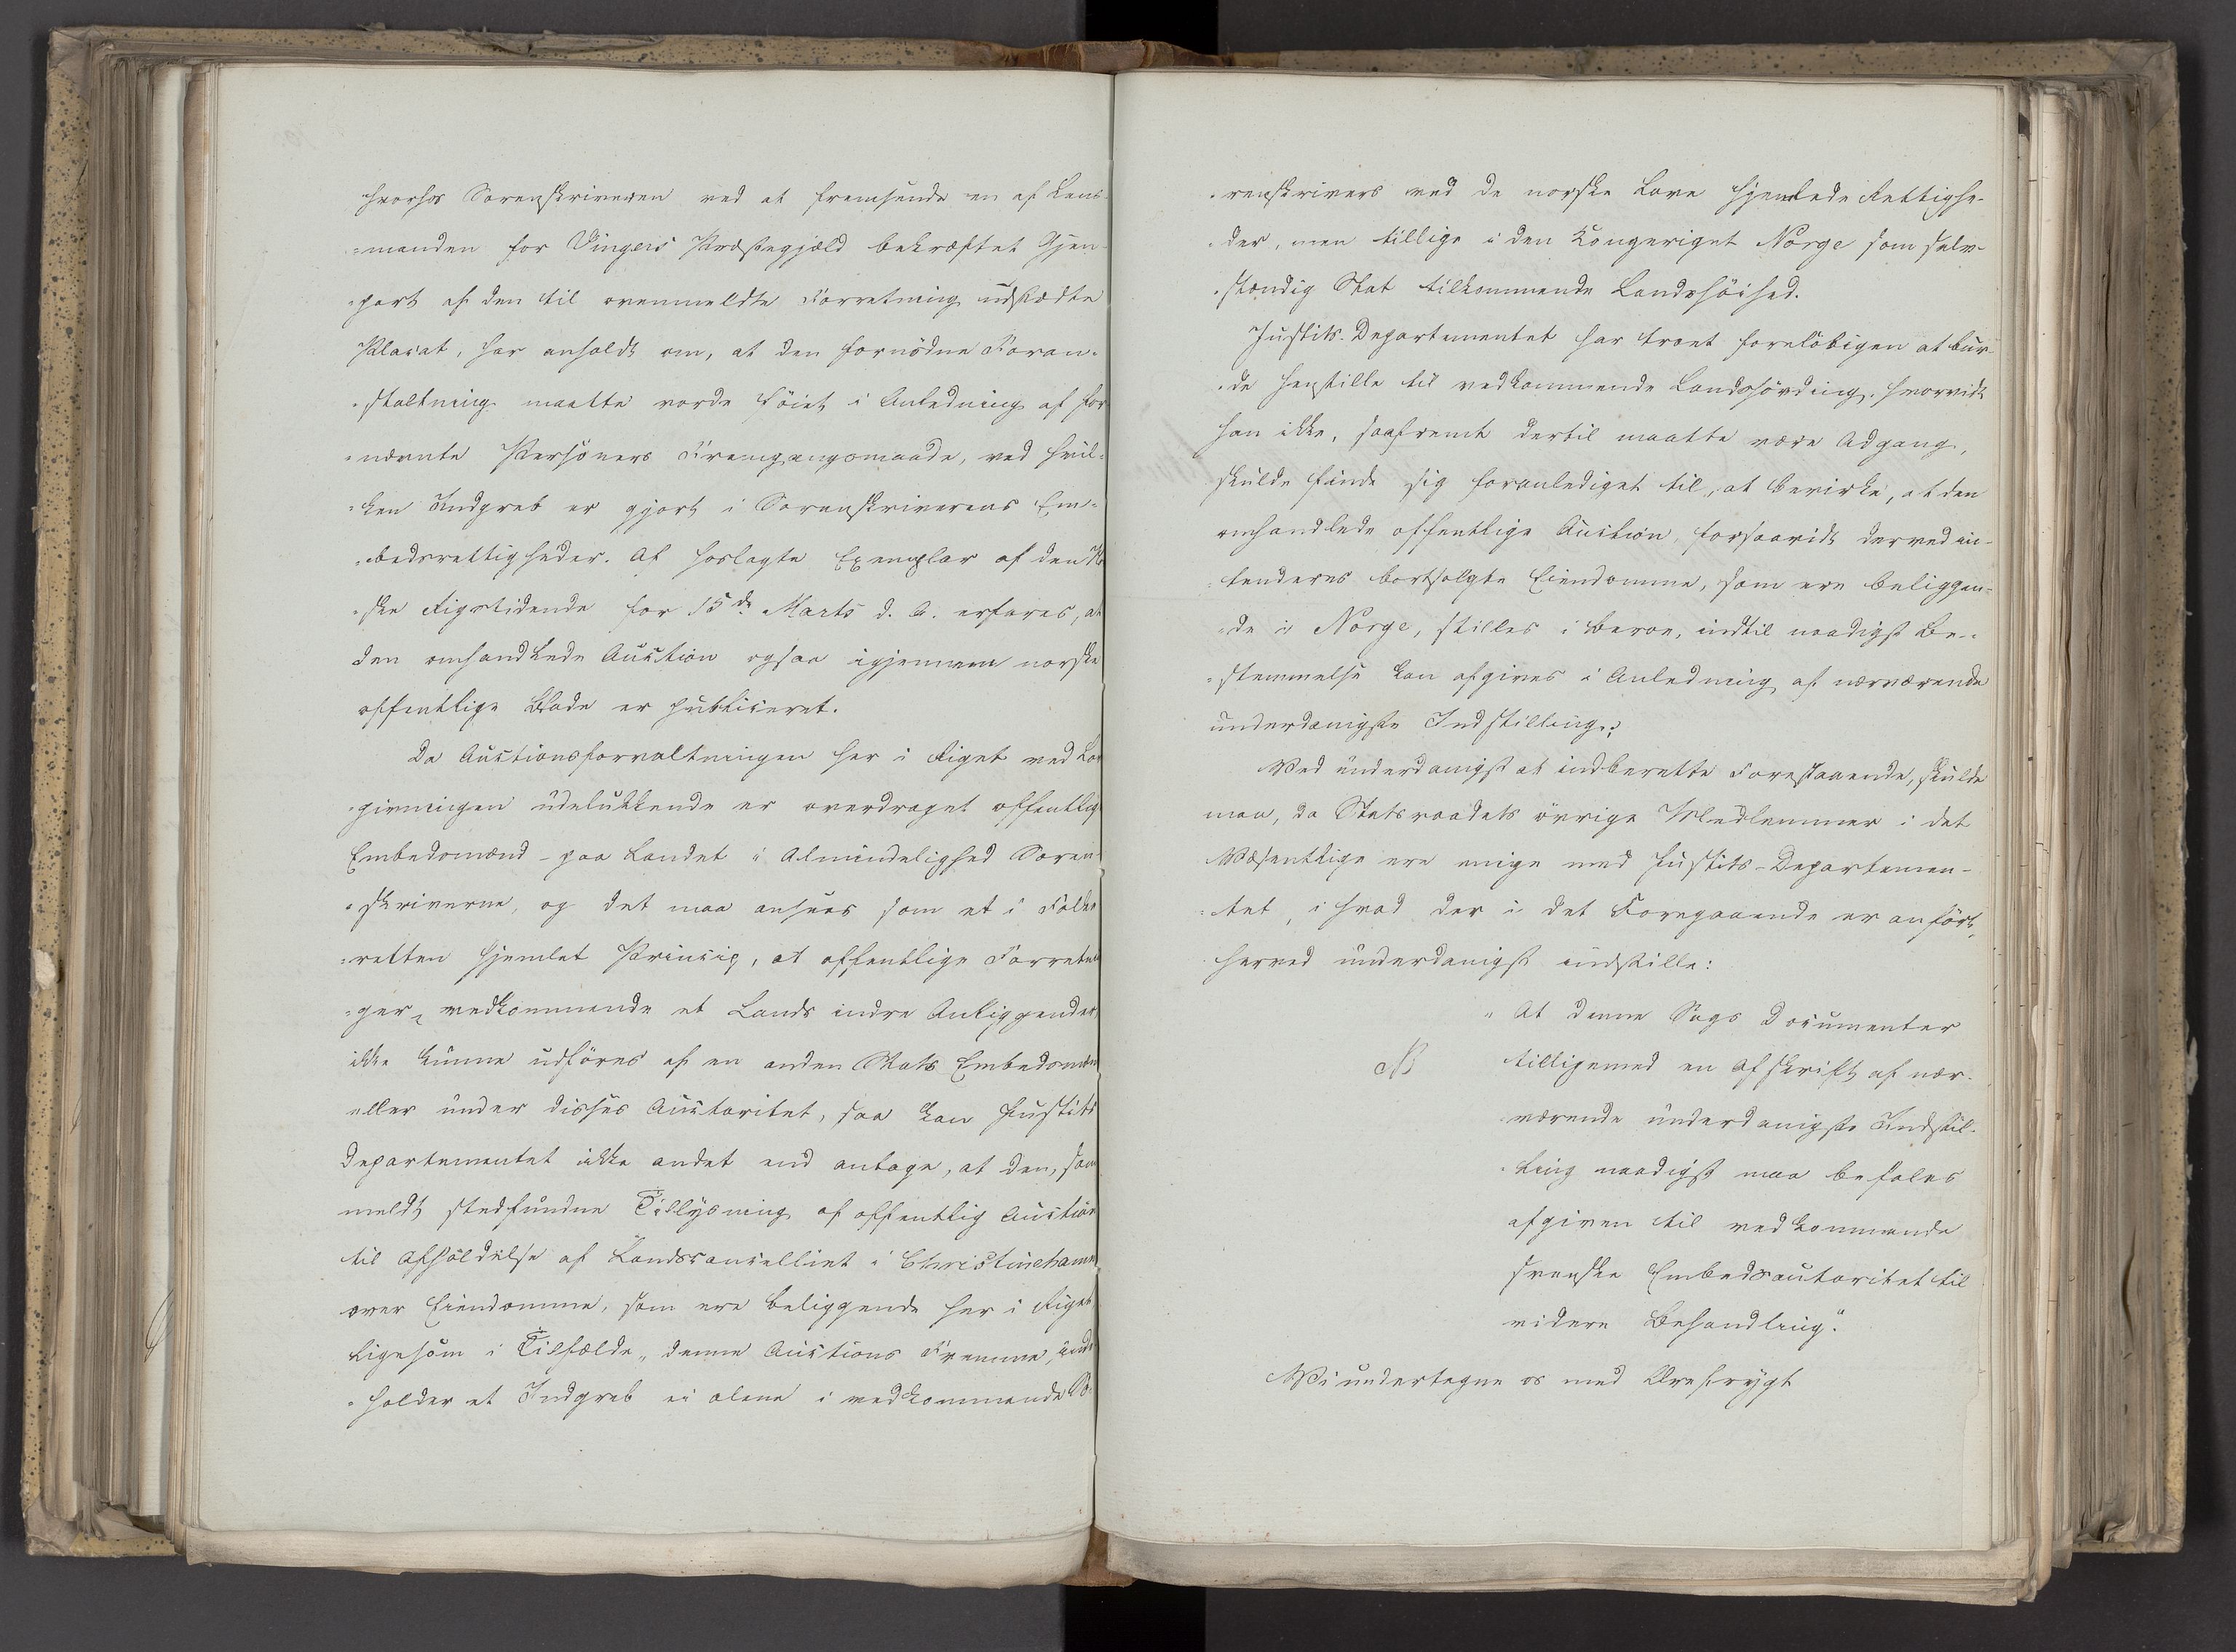 hvorhos Sorenskriveren ved at fremsende en af Lens-
-manden for Vingers Præstegjæld bekræftet Gjen-
-part af den til ovenmeldte Forretning udstædte
Placat, har anholdt om, at den fornödne Foran-
-staltning maatte vorde föiet i Anledning af for
-nævnte Personers Fremgangsmaade, ved hvil-
-ken Indgreb er gjort i Sorenskriverens Em-
-bedsrettigheder. Af hoslagte Exemplar af den No
-ske Rigstidende for 15de Marts d. A. erfares, at
den omhandlede Auction ogsaa igjennem norske
offentlige Blade er publiceret.
Da Auctionsforvaltningen her i Riget ved Lov
-givningen udelukkende er overdraget offentlig
Embedsmænd - paa Landet i Almindelighed Soren-
-skriverne, og det maa ansees som et i Folke
-retten hjemlet Princip, at offentlige Forretnin
-ger, vedkommende et Lands indre Anliggender,
ikke kunne udföres af en anden Stats Embedsmæn
eller under disses Auctoritet, saa kan Justits
Departementet ikke andet end antage, at den, som
meldt, stedfundne Tillysning af offentlig Auction
til Afholdelse af Landscancelliet i Christinehamn
over Eiendomme, som ere beliggende her i Riget,
ligesom i Tilfælde, denne Auctions Fremme, inde
-holder et Indgreb ei alene i vedkommende So-
-renskrivers ved de norske Love hjemlede Rettighe-
-der, men tillige i den Kongeriget Norge som selv-
-stændig Stat tilkommende Landshöihed.
Justits-Departementet har troet forelöbigen at bur-
-de henstille til vedkommende Landshövding, hvorvidt
han ikke, saafremt dertil maatte være Adgang,
skulde finde sig foranlediget til, at bevirke, at den
omhandlede offentlige Auction, forsaavidt derved in-
-tenderes bortsolgte Eiendomme, som ere beliggen-
-de i Norge, stilles i Beroe, indtil naadigst Be-
-stemmelse kan afgives i Anledning af nærværende
underdanigste Indstilling.
Ved underdanigst at indberette Forestaaende, skulde
man, da Statsraadets övrige Medlemmer i det
Væsentlige ere enige med Justits-Departemen-
-tet, i hvad der i det Foregaaende er anfört,
herved underdanigst indstille:
"At denne Sags Documenter
tilligemed en Afskrift af nær-
værende underdanigste Indstil-
-ling naadigst maa befales
afgiven til vedkommende
svenske Embedsautoritet til
videre Behandling."
Vi undertegne os med Ærefrygt